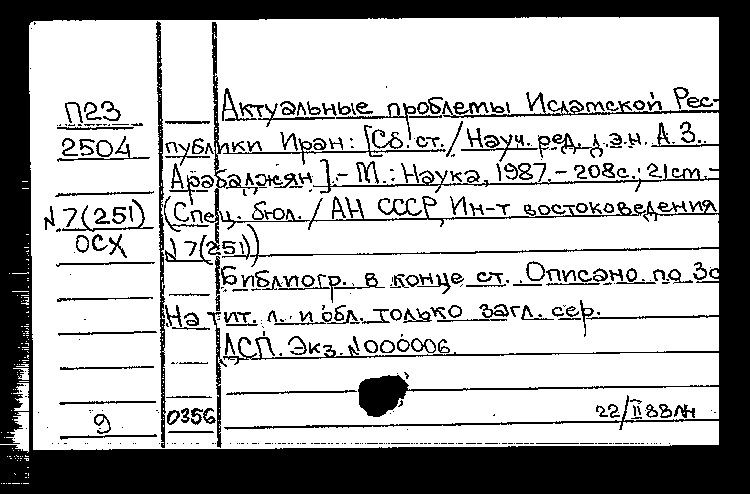 П23
2504
N7(251)
ОСХ
9
0356
Актуальные проблемы Исламской Рес-
публики Иран: [Сб. ст./Науч. ред. д.э.н. А.З.
Арабаджян].- М.: Наука, 1987.- 208с.; 21см.-
(Спец. бюл./АН СССР, Ин-т востоковедения
N7(251))
Библиогр. в конце ст. Описано по
На тит. л. и обл. только загл. сер.
ДСП. Экз. N000006.
22/II 88